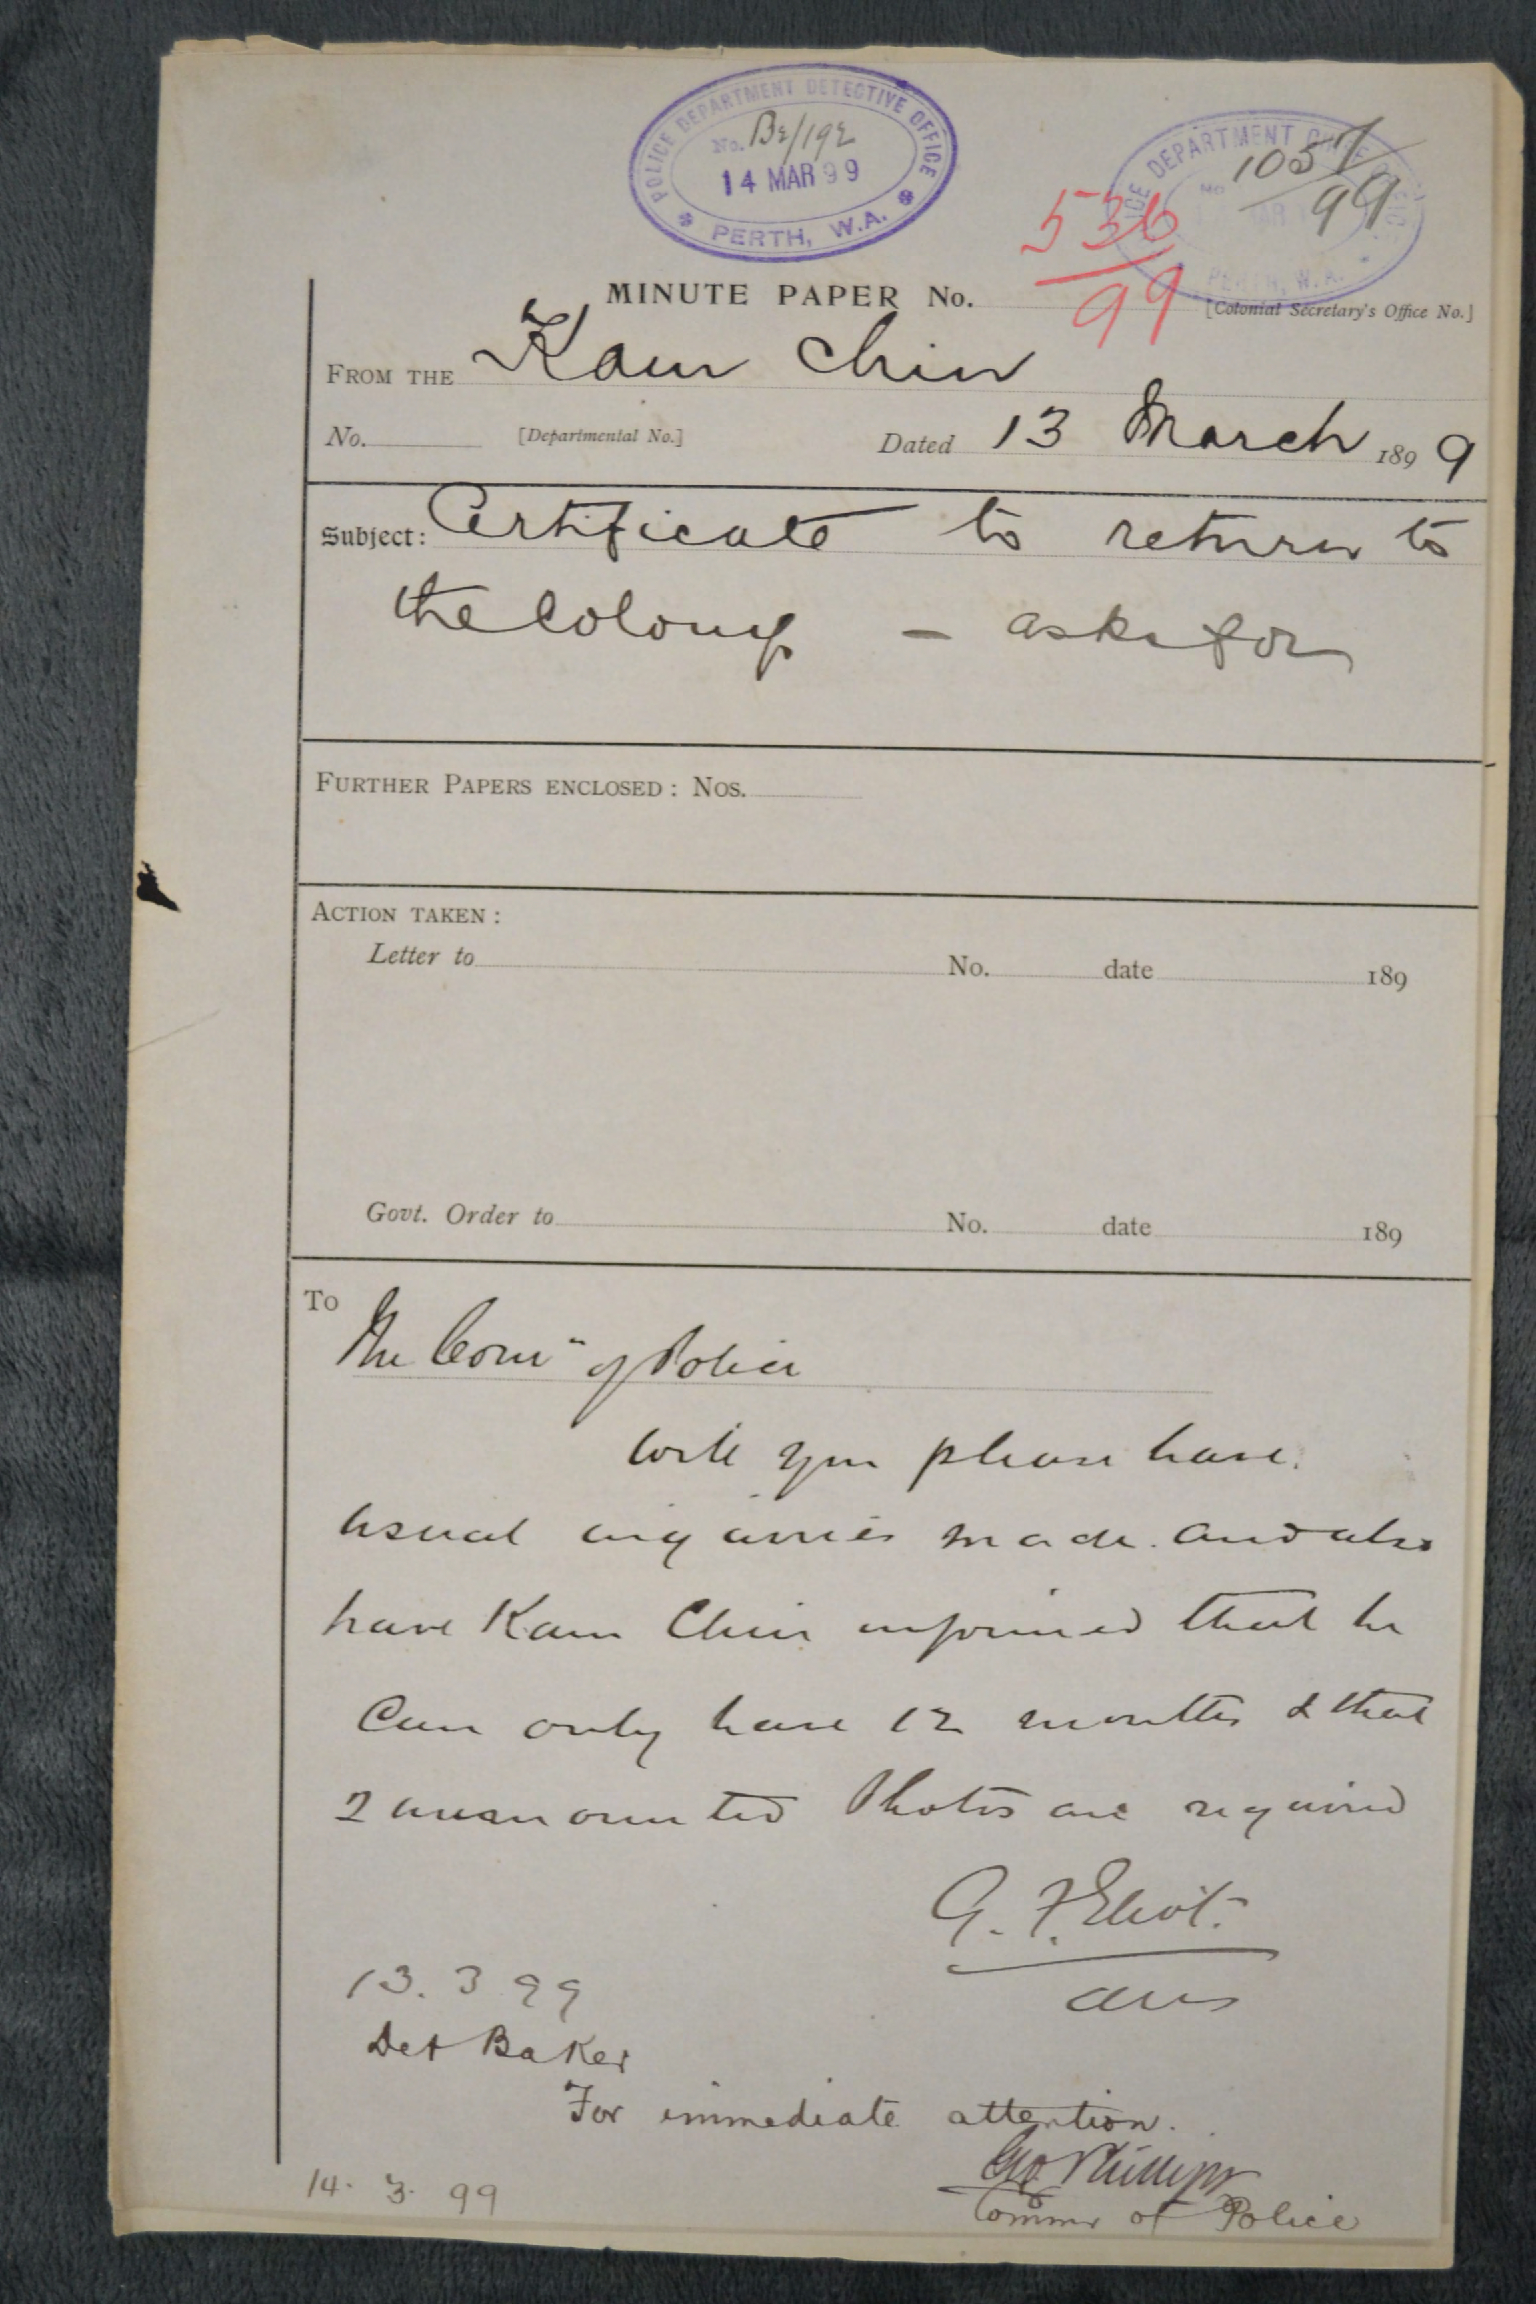 POLICE DEPARTMENT DETECTIVE OFFICE
No.
14 MAR 99
PERTH, W.A.
POLICE DEPARTMENT
No
1057/99
PERTH, W.A.
536/99
MINUTE PAPER No.
[Colonial Secretary's Office No.]
FROM THE Kam Chin
No. [Departmental No.] Dated 13 March 1899
Subject: Certificate to return to
the Colony - asks for
FURTHER PAPERS ENCLOSED: NOS.
ACTION TAKEN:
Letter to No. date 189
Govt. Order to No. date 189
To
The Comr of Police
Will you please have
usual inquiries made and also
have Kam Chin informed that he
can only have 12 months & that
2 unmounted Photos are required
G. F. Eliot
13.3 99
Det Baker
For immediate attention.
Geo Phillips
Commr of Police
14. 3. 99